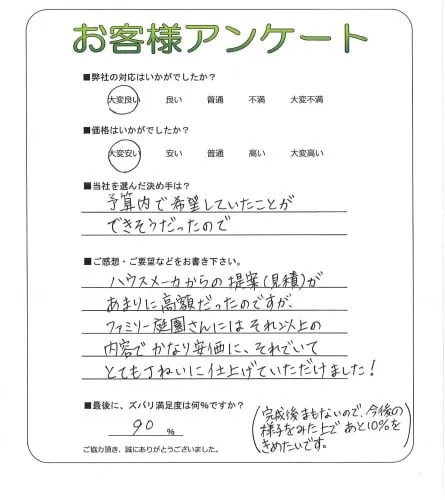 お客様アンケート
■弊社の対応はいかがでしたか？
大変良い 良い 普通 不満 大変不満
■価格はいかがでしたか？
大変安い 安い 普通 高い 大変高い
■当社を選んだ決め手は？
予算内で希望していたことが
できそうだったので
■ご感想・ご要望などをお書き下さい。
ハウスメーカからの提案(見積)が
あまりに高額だったのですが、
ファミリー庭園さんにはそれ以上の
内容でかなり安価に、それでいて
とてもていねいに仕上げていただけました！
■最後に、ズバリ満足度は何%ですか？
90 %
(完成後まもないので、今後の
様子をみた上であと10%を
きめたいです。)
ご協力頂き、誠にありがとうございました。